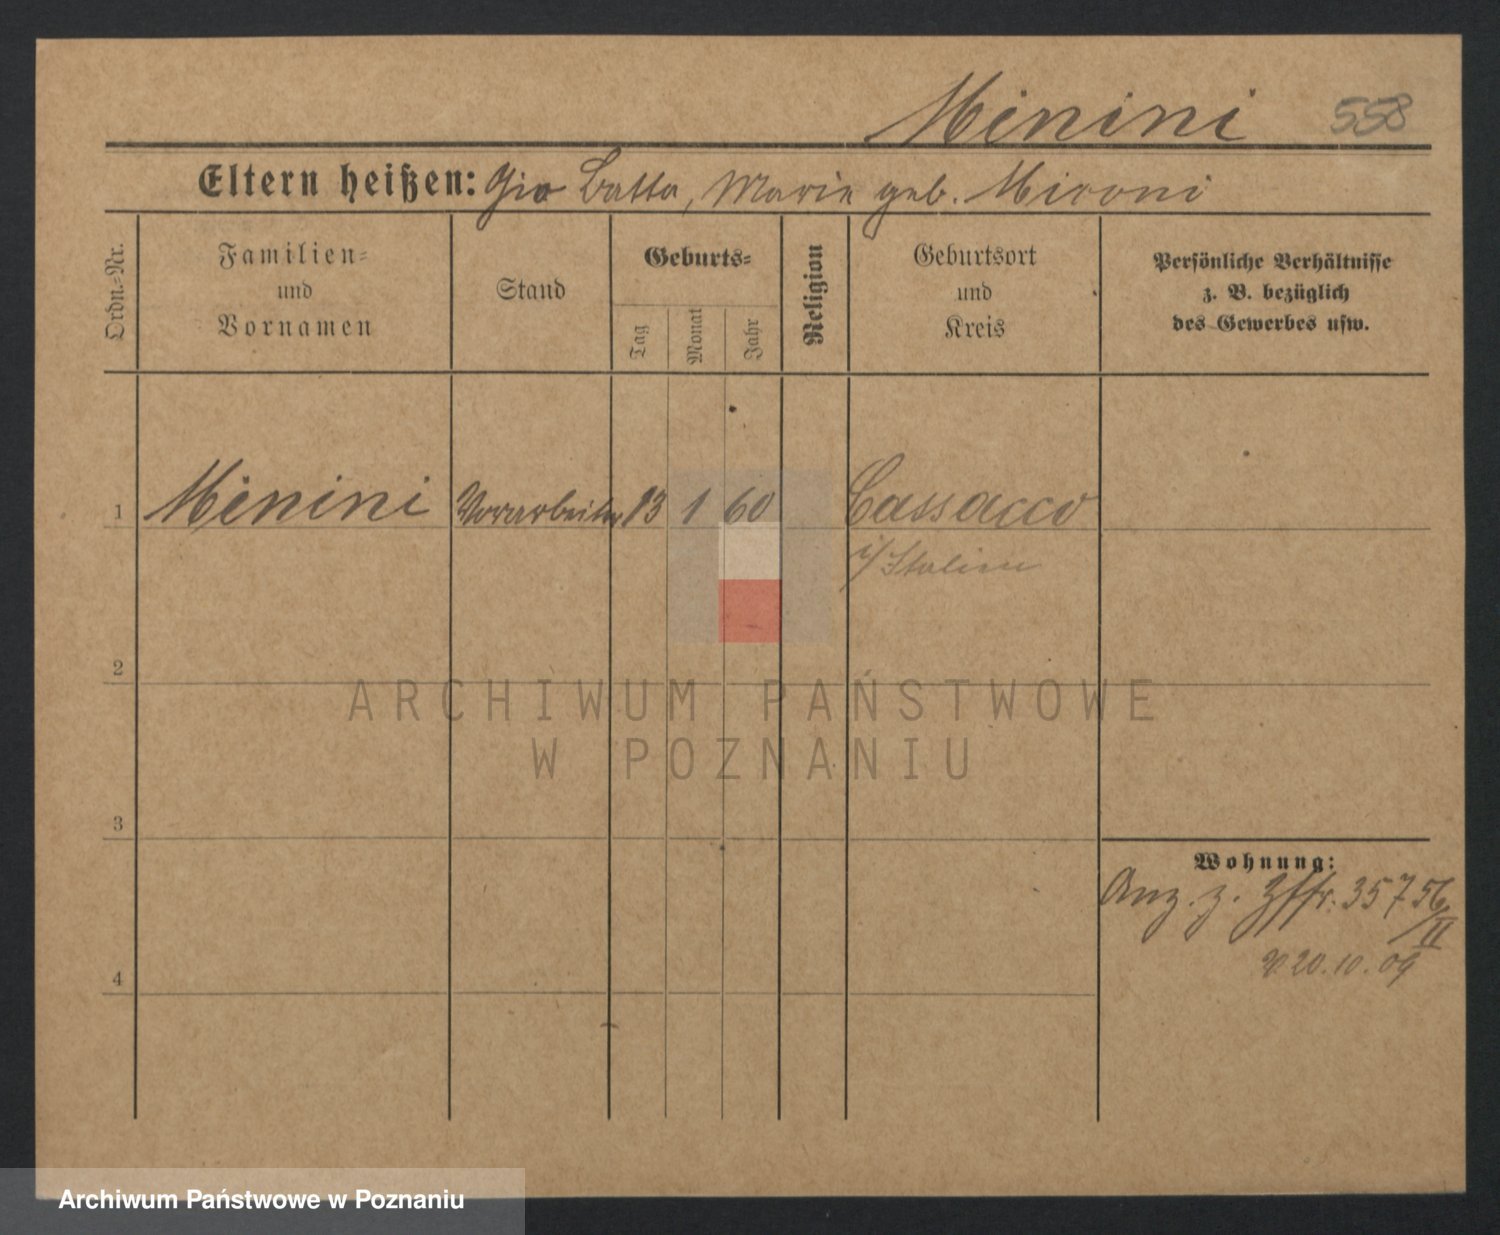 Minini 558
Eltern heißen: Gio Batta, Marie geb. Mironi
Ordn.-Nr.
Familien-
und
Vornamen
Stand
Geburts-
Tag
Monat
Jahr
Religion
Geburtsort
und
Kreis
Persönliche Verhältnisse
z. B. bezüglich
des Gewerbes usw.
1 Minini Vorarbeiter 13 1 60 Cassacco
i/Italien
2
ARCHIWUM PAŃSTWOWE
W POZNANIU
3
Wohnung:
Anz. z. Zffr. 35756/II
20.10.09
4
Archiwum Państwowe w Poznaniu